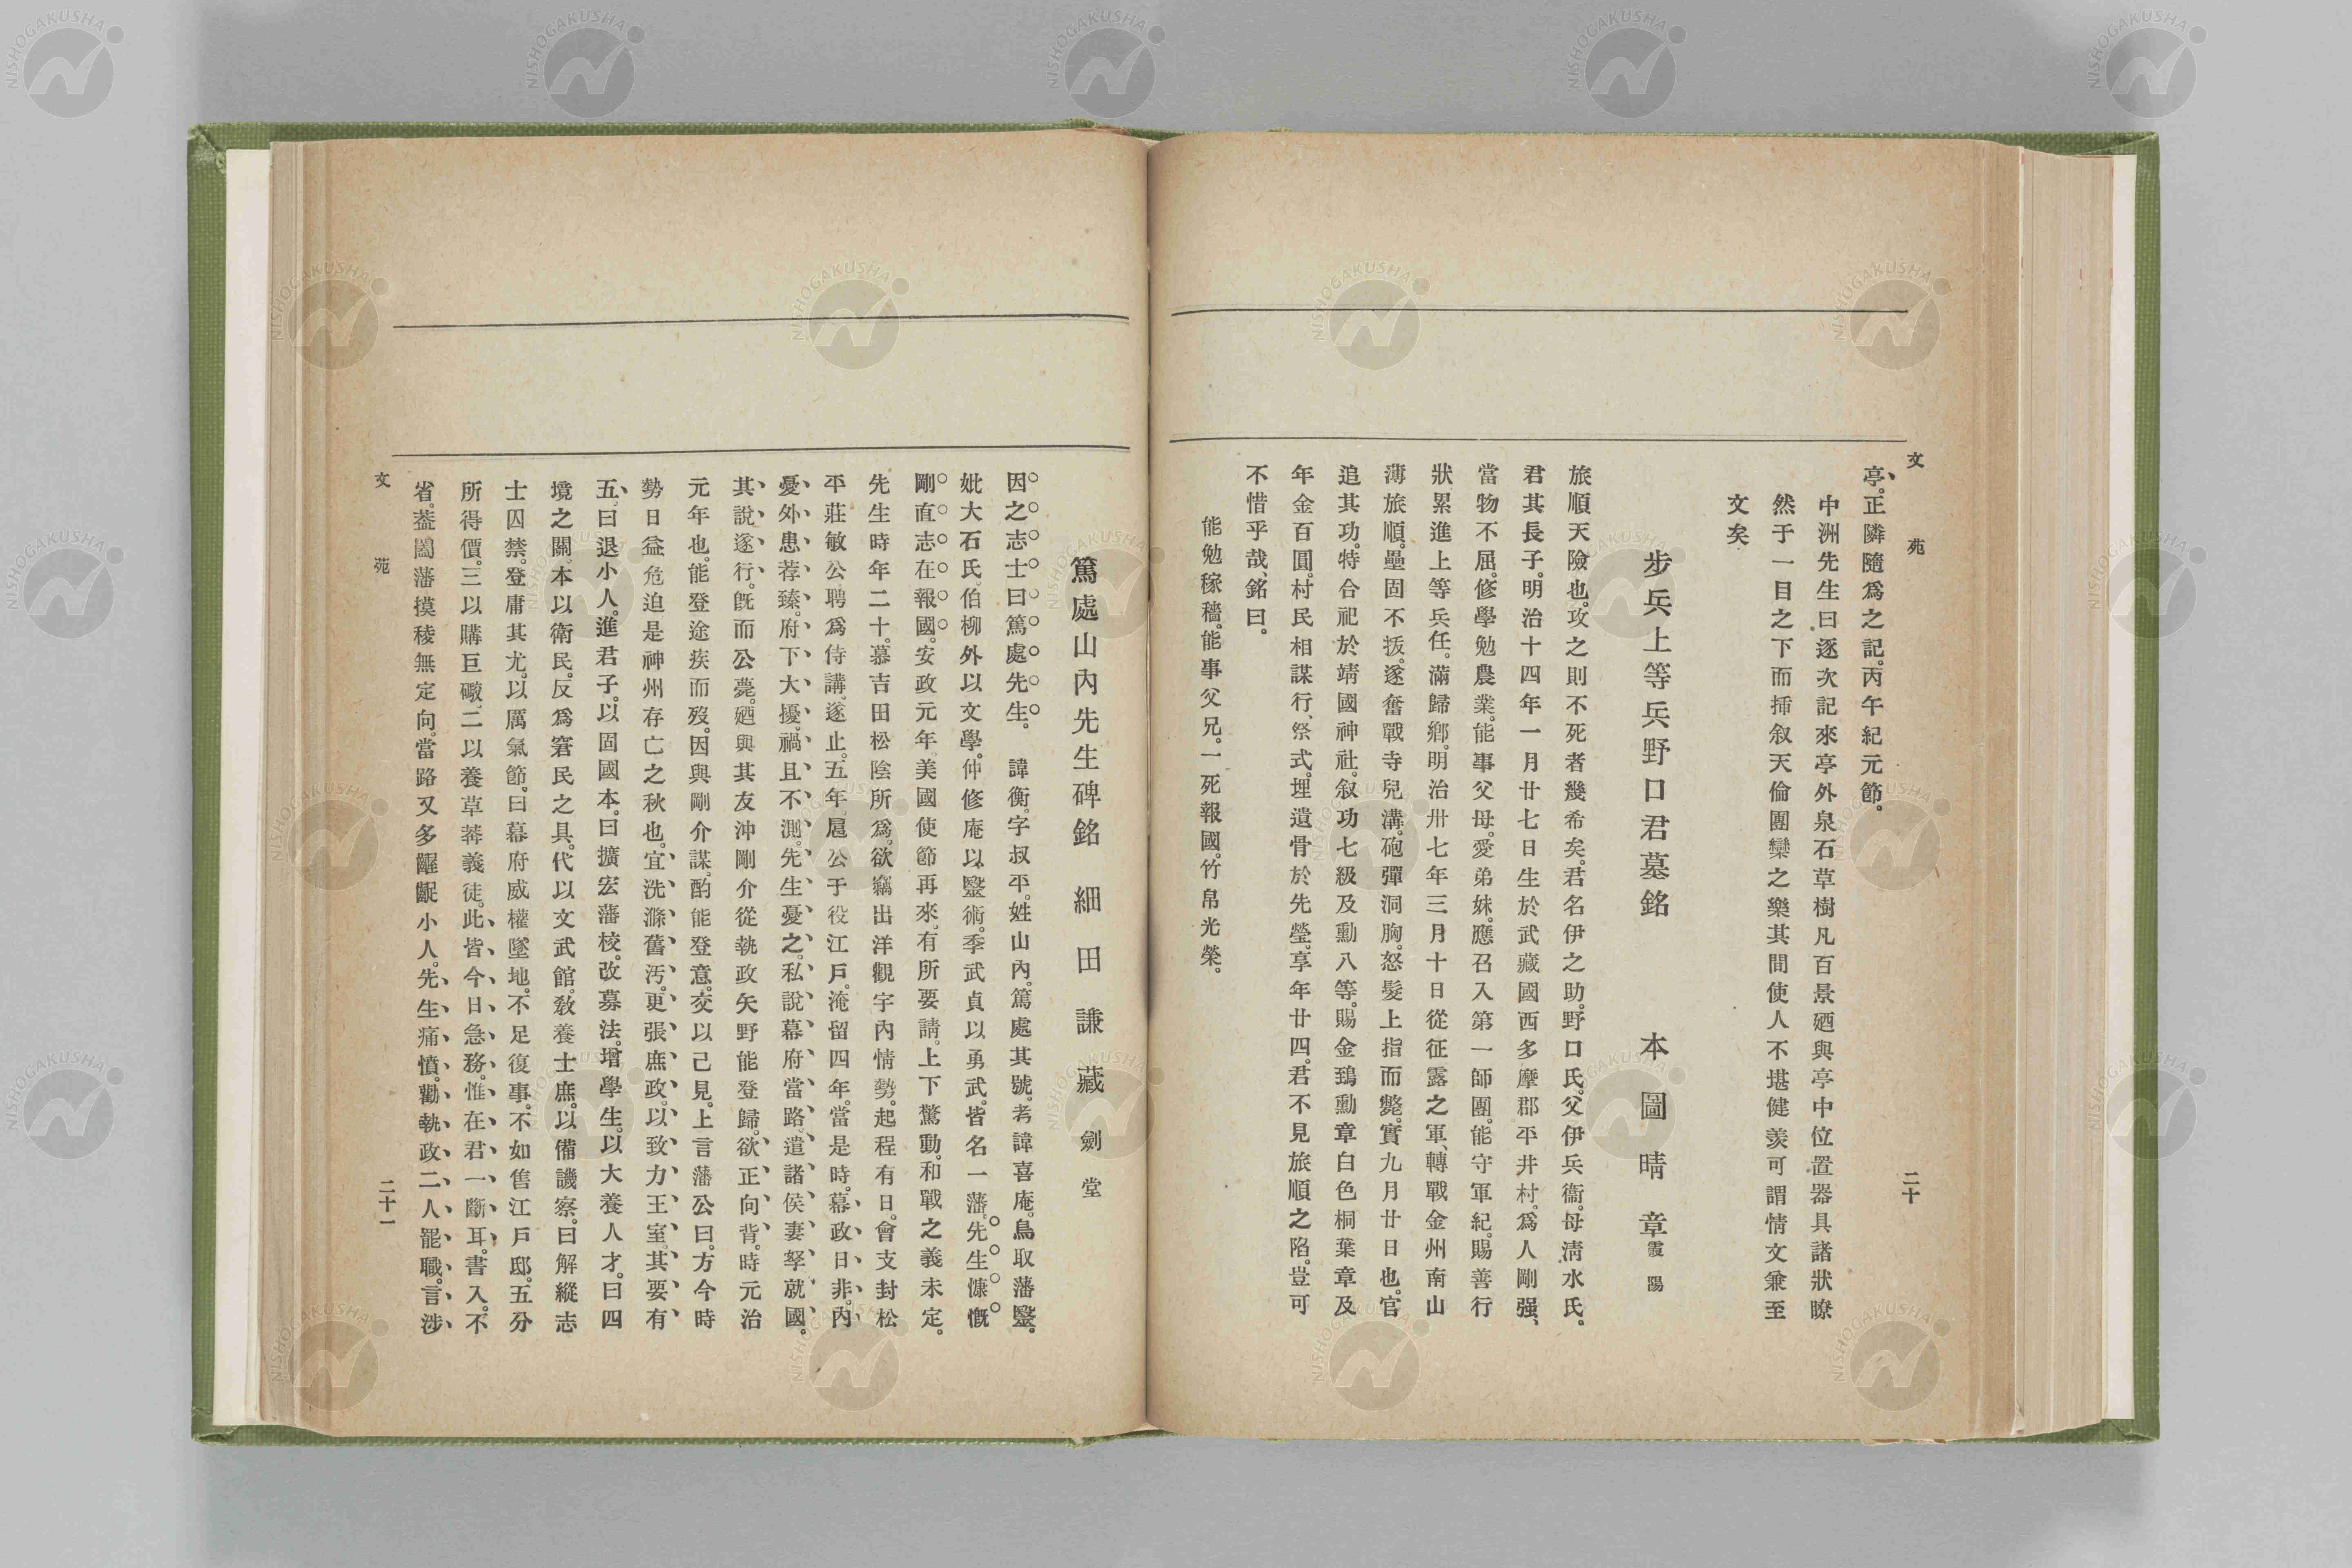 文苑
二十
亭。正隣隨爲之記。丙午紀元節。
中洲先生曰逐次記來亭外泉石草樹凡百景廼與亭中位置器具諸狀瞭
然于一目之下而揷敍天倫團欒之樂其間使人不堪健羨可謂情文兼至
文矣
步兵上等兵野口君墓銘　本圖晴章霞陽
旅順天險也。攻之則不死者幾希矣。君名伊之助。野口氏。父伊兵衞。母淸水氏。
君其長子。明治十四年一月廿七日生於武藏國西多摩郡平井村。爲人剛强、
當物不屈。修學勉農業。能事父母。愛弟妹。應召入第一師團。能守軍紀。賜善行
狀累進上等兵任。滿歸鄕。明治卅七年三月十日從征露之軍、轉戰金州南山
薄旅順。壘固不拔。遂奮戰寺兒溝。砲彈洞胸。怒髮上指而斃。實九月廿日也。官
追其功。特合祀於靖國神社。敍功七級及勳八等。賜金鵄勳章白色桐葉章及
年金百圓。村民相謀行、祭式。埋遺骨於先塋。享年廿四。君不見旅順之陷。豈可
不惜乎哉、銘曰。
能勉稼穡。能事父兄。一死報國。竹帛光榮。
篤處山內先生碑銘　細田謙藏劍堂
因之志士曰篤處先生。　諱衡。字叔平。姓山內。篤處其號。考諱喜庵。鳥取藩毉。
妣大石氏。伯柳外以文學。仲修庵以毉術。季武貞以勇武。皆名一藩。先生慷慨
剛直志在報國。安政元年美國使節再來。有所要請。上下驚動。和戰之義未定。
先生時年二十。慕吉田松陰所爲。欲竊出洋觀宇內情勢。起程有日。會支封松
平莊敏公聘爲侍講。遂止。五年。扈公于役江戶。淹留四年。當是時。幕政日非。內
憂外患荐臻。府下大擾。禍且不測。先生憂之。私說幕府當路。遣諸侯妻孥就國。
其說遂行。旣而公薨。廼與其友沖剛介從執政矢野能登歸。欲正向背。時元治
元年也。能登途疾而歿。因與剛介謀。酌能登意。交以己見。上言藩公曰。方今時
勢日益危迫是神州存亡之秋也。宜洗滌舊汚。更張庶政。以致力王室。其要有
五、曰退小人。進君子。以固國本。曰擴宏藩校。改募法。增學生。以大養人才。曰四
境之關。本以衞民。反爲窘民之具。代以文武館。敎養士庶。以備譏察。曰解縱志
士囚禁。登庸其尤。以厲氣節。曰幕府威權墜地。不足復事。不如售江戶邸。五分
所得價。三以購巨礮。二以養草莽義徒。此皆今日急務。惟在君一斷耳。書入。不
省。葢闔藩摸稜無定向。當路又多齷齪小人。先生痛憤。勸執政二人罷職。言涉
文苑
二十一